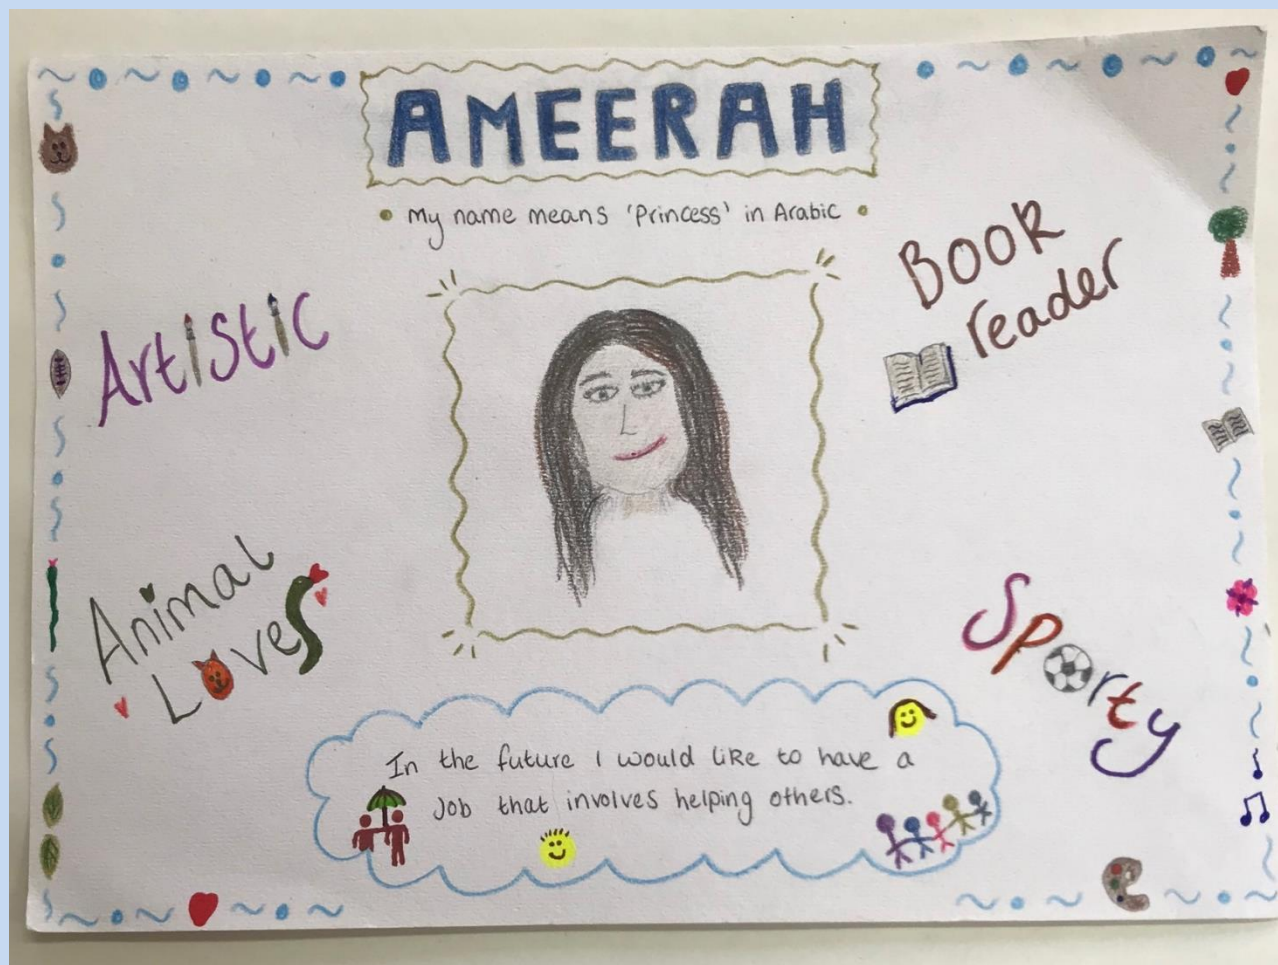 AMEERAH
• My name means 'Princess' in Arabic •
Artistic
Book
reader
Animal
Lover
Sporty
In the future I would like to have a
Job that involves helping others.